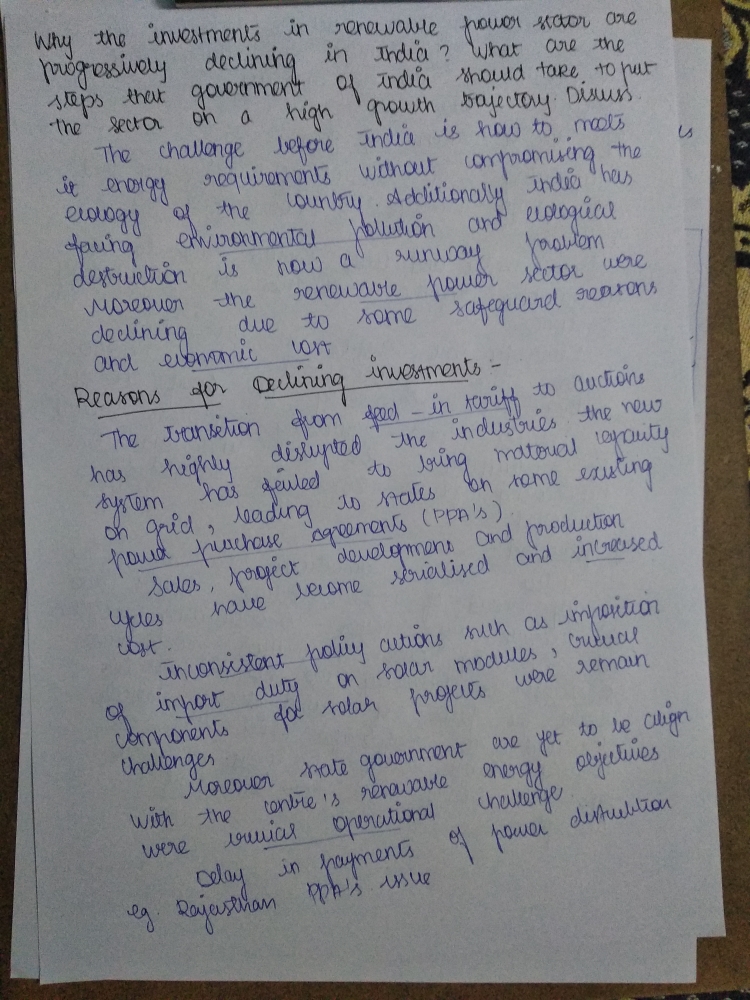 Why the investments in renewable power sector are
progressively declining in India? What are the
steps that government of India should take to put
the sector on a high growth trajectory. Discuss.
The challenge before India is how to meets
it energy requirements without compromising the
ecology of the country. Additionally India has
facing environmental pollution and ecological
destruction is now a runway problem
Moreover the renewable power sector were
declining due to some safeguard reasons
and economic cost
Reasons for Declining investments:-
The transition from feed-in tariff to auctions
has highly disrupted the industries the new
system has failed to bring material capacity
on grid, leading to states on some existing
power purchase agreements (PPA's)
Sales, project development and production
cycles have become serialised and increased
cost.
Inconsistent policy actions such as imposition
of import duty on solar modules, crucial
components for solar projects were remain
challenges
Moreover state government are yet to be align
with the centre's renewable energy objectives
were crucial operational challenge
Delay in payments of power distribution
eg. Rajasthan PPA's issue